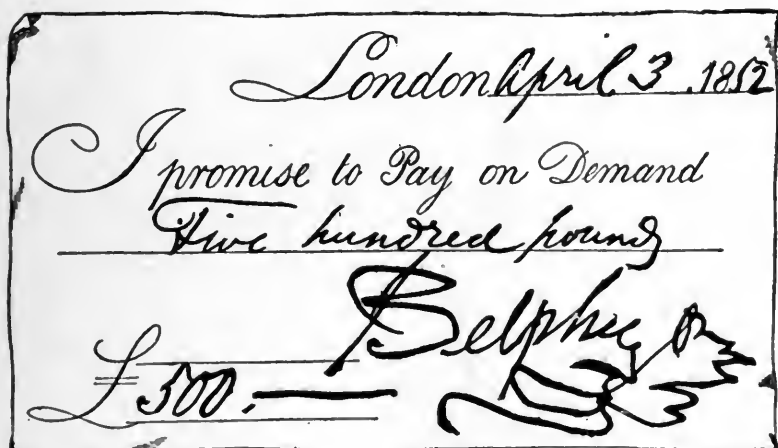 London April 3 .1852
I promise to Pay on Demand
Five hundred pounds
£500.—